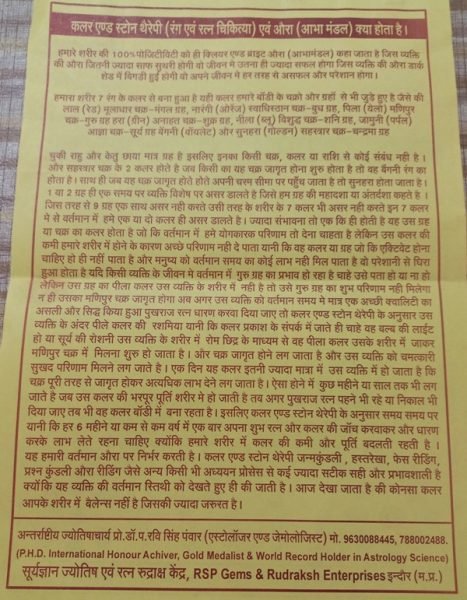 कलर एण्ड स्टोन थैरेपी (रंग एवं रत्न चिकित्या) एवं औरा (आभा मंडल) क्या होता है।
हमारे शरीर की 100%पोजिटीविटी को ही क्लियर एण्ड ब्राइट औरा (आभामंडल) कहा जाता है जिस व्यक्ति
की औरा जितनी ज्यादा साफ सुथरी होगी वो जीवन मे उतना ही ज्यादा सफल होगा जिस व्यक्ति की औरा डार्क
शेड में बिगड़ी हुई होगी वो अपने जीवन मे हर तरह से असफल और परेशान होगा।
हमारा शरीर 7 रंग के कलर से बना हुआ है यही कलर हमारे बॉडी के चक्रो और ग्रहों से भी जुडे हुए है जैसे की
लाल (रेड) मूलाधार चक्र-मंगल ग्रह, नारंगी (ऑरेंज) स्वाधिस्तान चक्र–बुध ग्रह, पिला (येलो) मणिपुर
चक्र–गुरु ग्रह हरा (ग्रीन) अनाहत चक्र–शुक्र ग्रह, नीला (ब्लू) विशुद्ध चक्र–शनि ग्रह, जामुनी (पर्पल)
आज्ञा चक्र–सूर्य ग्रह बेंगनी (वॉयलेट) और सुनहरा (गोल्डन) सहस्त्रार चक्र–चन्द्रमा ग्रह
चुकी राहु और केतु छाया मात्र ग्रह है इसलिए इनका किसी चक्र, कलर या राशि से कोई संबंध नही है।
और सहस्त्रार चक्र के 2 कलर होते है जब किसी का यह चक्र जागृत होना शुरु होता है तो वह बेंगनी रंग का
होता है। साथ ही जब यह चक्र जागृत होते होते अपनी चरम सीमा पर पहुँच जाता है तो सुनहरा होता जाता है।
1 या 2 ग्रह ही एक समय पर व्यक्ति विशेष पर असर डालते है जिसे हम ग्रह की महादशा या अंतर्दशा कहते है।
जिस तरह से 9 ग्रह एक साथ असर नही करते उसी तरह के शरीर के 7 कलर भी असर नही करते इन 7 कलर
मे से वर्तमान में हमे एक या दो कलर ही असर डालते है। ज्यादा संभावना तो एक कि ही होती है यह उस ग्रह
या चक्र का कलर होता है जो कि वर्तमान में हमे योगकारक परिणाम तो देना चाहता है लेकिन उस कलर की
कमी हमारे शरीर में होने के कारण अच्छे परिणाम नही दे पाता यानि की वह कलर या ग्रह जो कि एक्टिवेट होना
चाहिए हो ही नहीं पाता और मनुष्य को वर्तमान समय का कोई लाभ नही मिल पाता है वो परेशानी से घिरा
हुआ होता है यदि किसी व्यक्ति के जीवन मे वर्तमान में गुरु ग्रह का प्रभाव हो रहा है चाहे उसे पता हो या ना हो
लेकिन उस ग्रह का पीला कलर उस व्यक्ति के शरीर में नही है तो उसे गुरु ग्रह का शुभ परिणाम नही मिलेगा
न ही उसका मणिपुर चक्र जागृत होगा अब अगर उस व्यक्ति को वर्तमान समय मे मात्र एक अच्छी क्वालिटी का
असली और सिद्ध किया हुआ पुखराज रत्न धारण करवा दिया जाए तो कलर एण्ड स्टोन थेरेपी के अनुसार उस
व्यक्ति के अंदर पीले कलर की रशमिया यानि कि कलर प्रकाश के संपर्क में जाते ही चाहे वह वल्व की लाईट
हो या सूर्य की रोशनी उस व्यक्ति के शरीर में रोम छिद्र के माध्यम से वह पीला कलर उसके शरीर में जाकर
मणिपुर चक्र में मिलना शुरु हो जाता है। और चक्र जागृत होने लग जाता है और उस व्यक्ति को चमत्कारी
सुखद परिणाम मिलने लग जाते है। एक दिन यह कलर इतनी ज्यादा मात्रा में उस व्यक्ति में हो जाता है कि
चक्र पूरी तरह से जागृत होकर अत्यधिक लाभ देने लग जाता है। ऐसा होने में कुछ महीने या साल तक भी लग
जाते है जब उस कलर की भरपूर पूर्ति शरीर मे हो जाती है तब अगर पुखराज रत्न पहने भी रहे या निकाल भी
दिया जाए तब भी वह कलर बॉडी में बना रहता है। इसलिए कलर एण्ड स्टोन थेरेपी के अनुसार समय समय पर
यानि कि हर 6 महीना या कम से कम वर्ष में एक बार अपना शुभ रत्न और कलर की जॉच करवाकर और धारण
करके लाभ लेते रहना चाहिए क्योंकि हमारे शरीर में कलर की कमी और पूर्ति बदलती रहती है।
यह हमारी वर्तमान औरा पर निर्भर करती है। कलर एण्ड स्टोन थेरेपी जन्मकुंडली, हस्तरेखा, फेस रीडिंग,
प्रश्न कुंडली औरा रीडिंग जैसे अन्य किसी भी अध्ययन प्रोसेस से कई ज्यादा सटीक सही और प्रभावशाली है
क्योंकि यह व्यक्ति की वर्तमान स्तिथी को देखते हुए ही की जाती है। आज देखा जाता है की कोनसा कलर
आपके शरीर में बेलेन्स नहीं है जिसकी ज्यादा जरुरत है।
अन्तर्राष्ट्रीय ज्योतिषाचार्य प्रो.डॉ.प.रवि सिंह पंवार (एस्टोलॉजर एण्ड जेमोलोजिस्ट) मो. 9630088445, 788002488.
(P.H.D. International Honour Achiver, Gold Medalist & World Record Holder in Astrology Science)
सुर्यज्ञान ज्योतिष एवं रत्न रुद्राक्ष केंद्र, RSP Gems & Rudraksh Enterprises इन्दौर (म.प्र.)